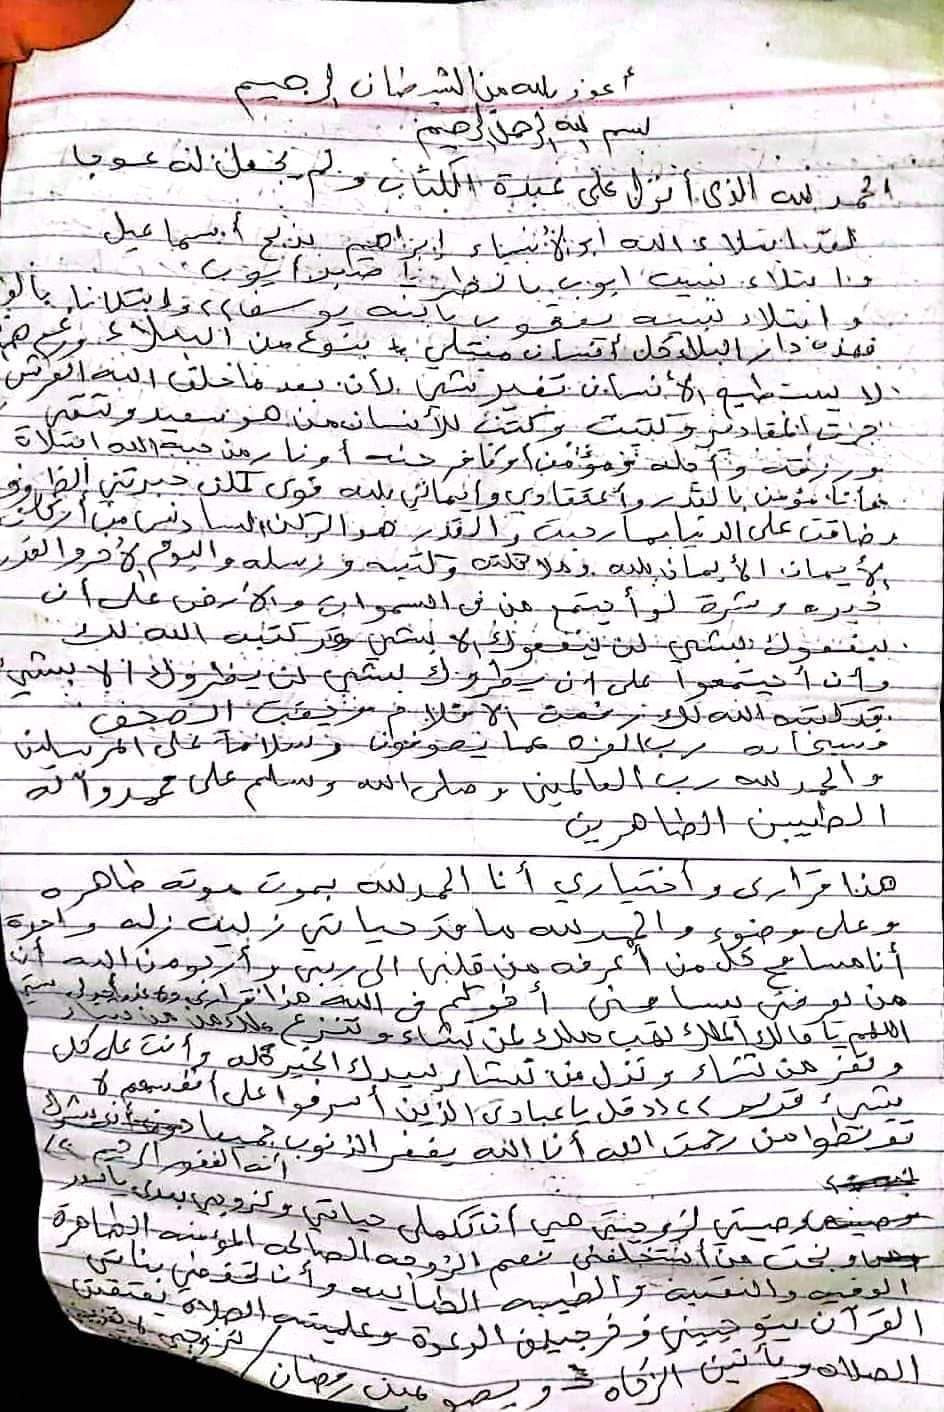 أعوذ بلله من الشيطان الرجيم
بسم الله الرحمن الرحيم
الحمد لله الذي أنزل على عبدة الكتاب ولم يجعل له عوجا
لقد ابتلاء الله أبو الأنبياء إبراهيم بذبح أسماعيل
وابتلاء نبيه ايوب
وابتلاء نبيه يعقوب بابنه يوسف وابتلانا
فهذه دار البلاء كل أنسان مبتلى بنوع من البلاء
لا يستطيع الأنسان تغير شي لأن بعد ما خلق الله العرش
جرت المقادير وكتبت وكتب للأنسان من هو سعيد وشقي
ورزقه وأجله مؤمن أو كافر جنه أو نار ومن حبه الله ابتلاة
فأنا مؤمن بالقدر وأعتقادي وإيماني بلله قوى لكن جبرتني الظروف
وضاقت على الدنيا بما رحبت والقدر هو الركن السادس من أركان
الأيمان الأيمان بلله وملائكته وكتبه ورسله واليوم الأخر والقدر
خيره وشرة لو أجتمع من في السموات والأرض على أن
ينفعوك بشي لن ينفعوك الا بشي قد كتبه الله لك
وأن أجتمعوا على أن يظروك بشي لن يظروك الا بشي
قد كتبه الله لك رفعت الاقلام وجفت الصحف
وسبحانه رب العزه عما يصفون وسلاما على المرسلين
والحمد لله رب العالمين وصلى الله وسلم على محمد وأله
الطيبن الطاهرين
هذا قراري وأختياري أنا الحمد لله بموت موته طاهره
وعلى وضوء والحمد لله ما قد حياتي زليت زله واحدة
أنا مسامح كل من أعرفه من قلبي الى ربي وأرجو من الله أن
من يعرفني يسامحني أخوكم في الله هذا قراري
اللهم يا مالك الملك تهب ملك لمن تشاء وتنزع ملك من من تشاء
وتعز من تشاء وتذل من تشاء بيدك الخير كله وأنت على كل
شيء قدير >> << قل يا عبادي الذين أسرفوا على أنفسهم لا
تقنطوا من رحمت الله أنا الله يغفر الذنوب جميعا
أنه الغفور الرحيم >>
وصيتي لزوجيتي هي أن تكملي حياتي وتزوجي بعدي
ونحت من أنتخلفني نعم الزوجه الصالحه المؤمنه الطاهرة
الوفيه والنقيه والطيبه الطائيه وأن تحفظي بناتي
القرآن وعلميه الصلاه
الصلاه ويأتين الزكاه ويصومين رمضان / تتزوجي